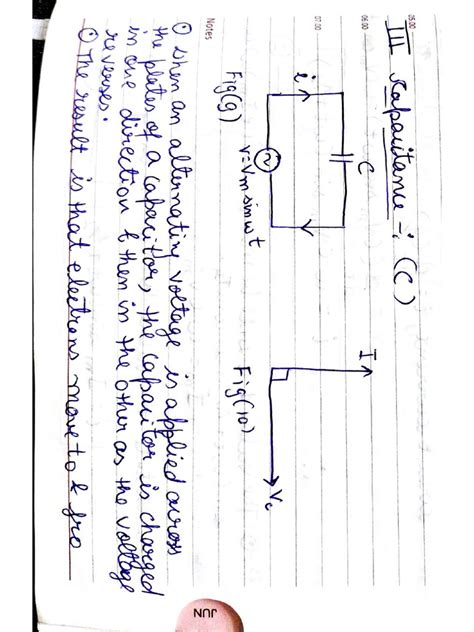 05.00
III Capacitance -: (C)
06.00
07.00
C
i
V=Vm sin wt
Fig(9)
I
Vc
Fig(10)
Notes
① When an alternating voltage is applied across
the plates of a capacitor, the capacitor is charged
in one direction & then in the other as the voltage
reverses.
① The result is that electrons move to & fro
JUN